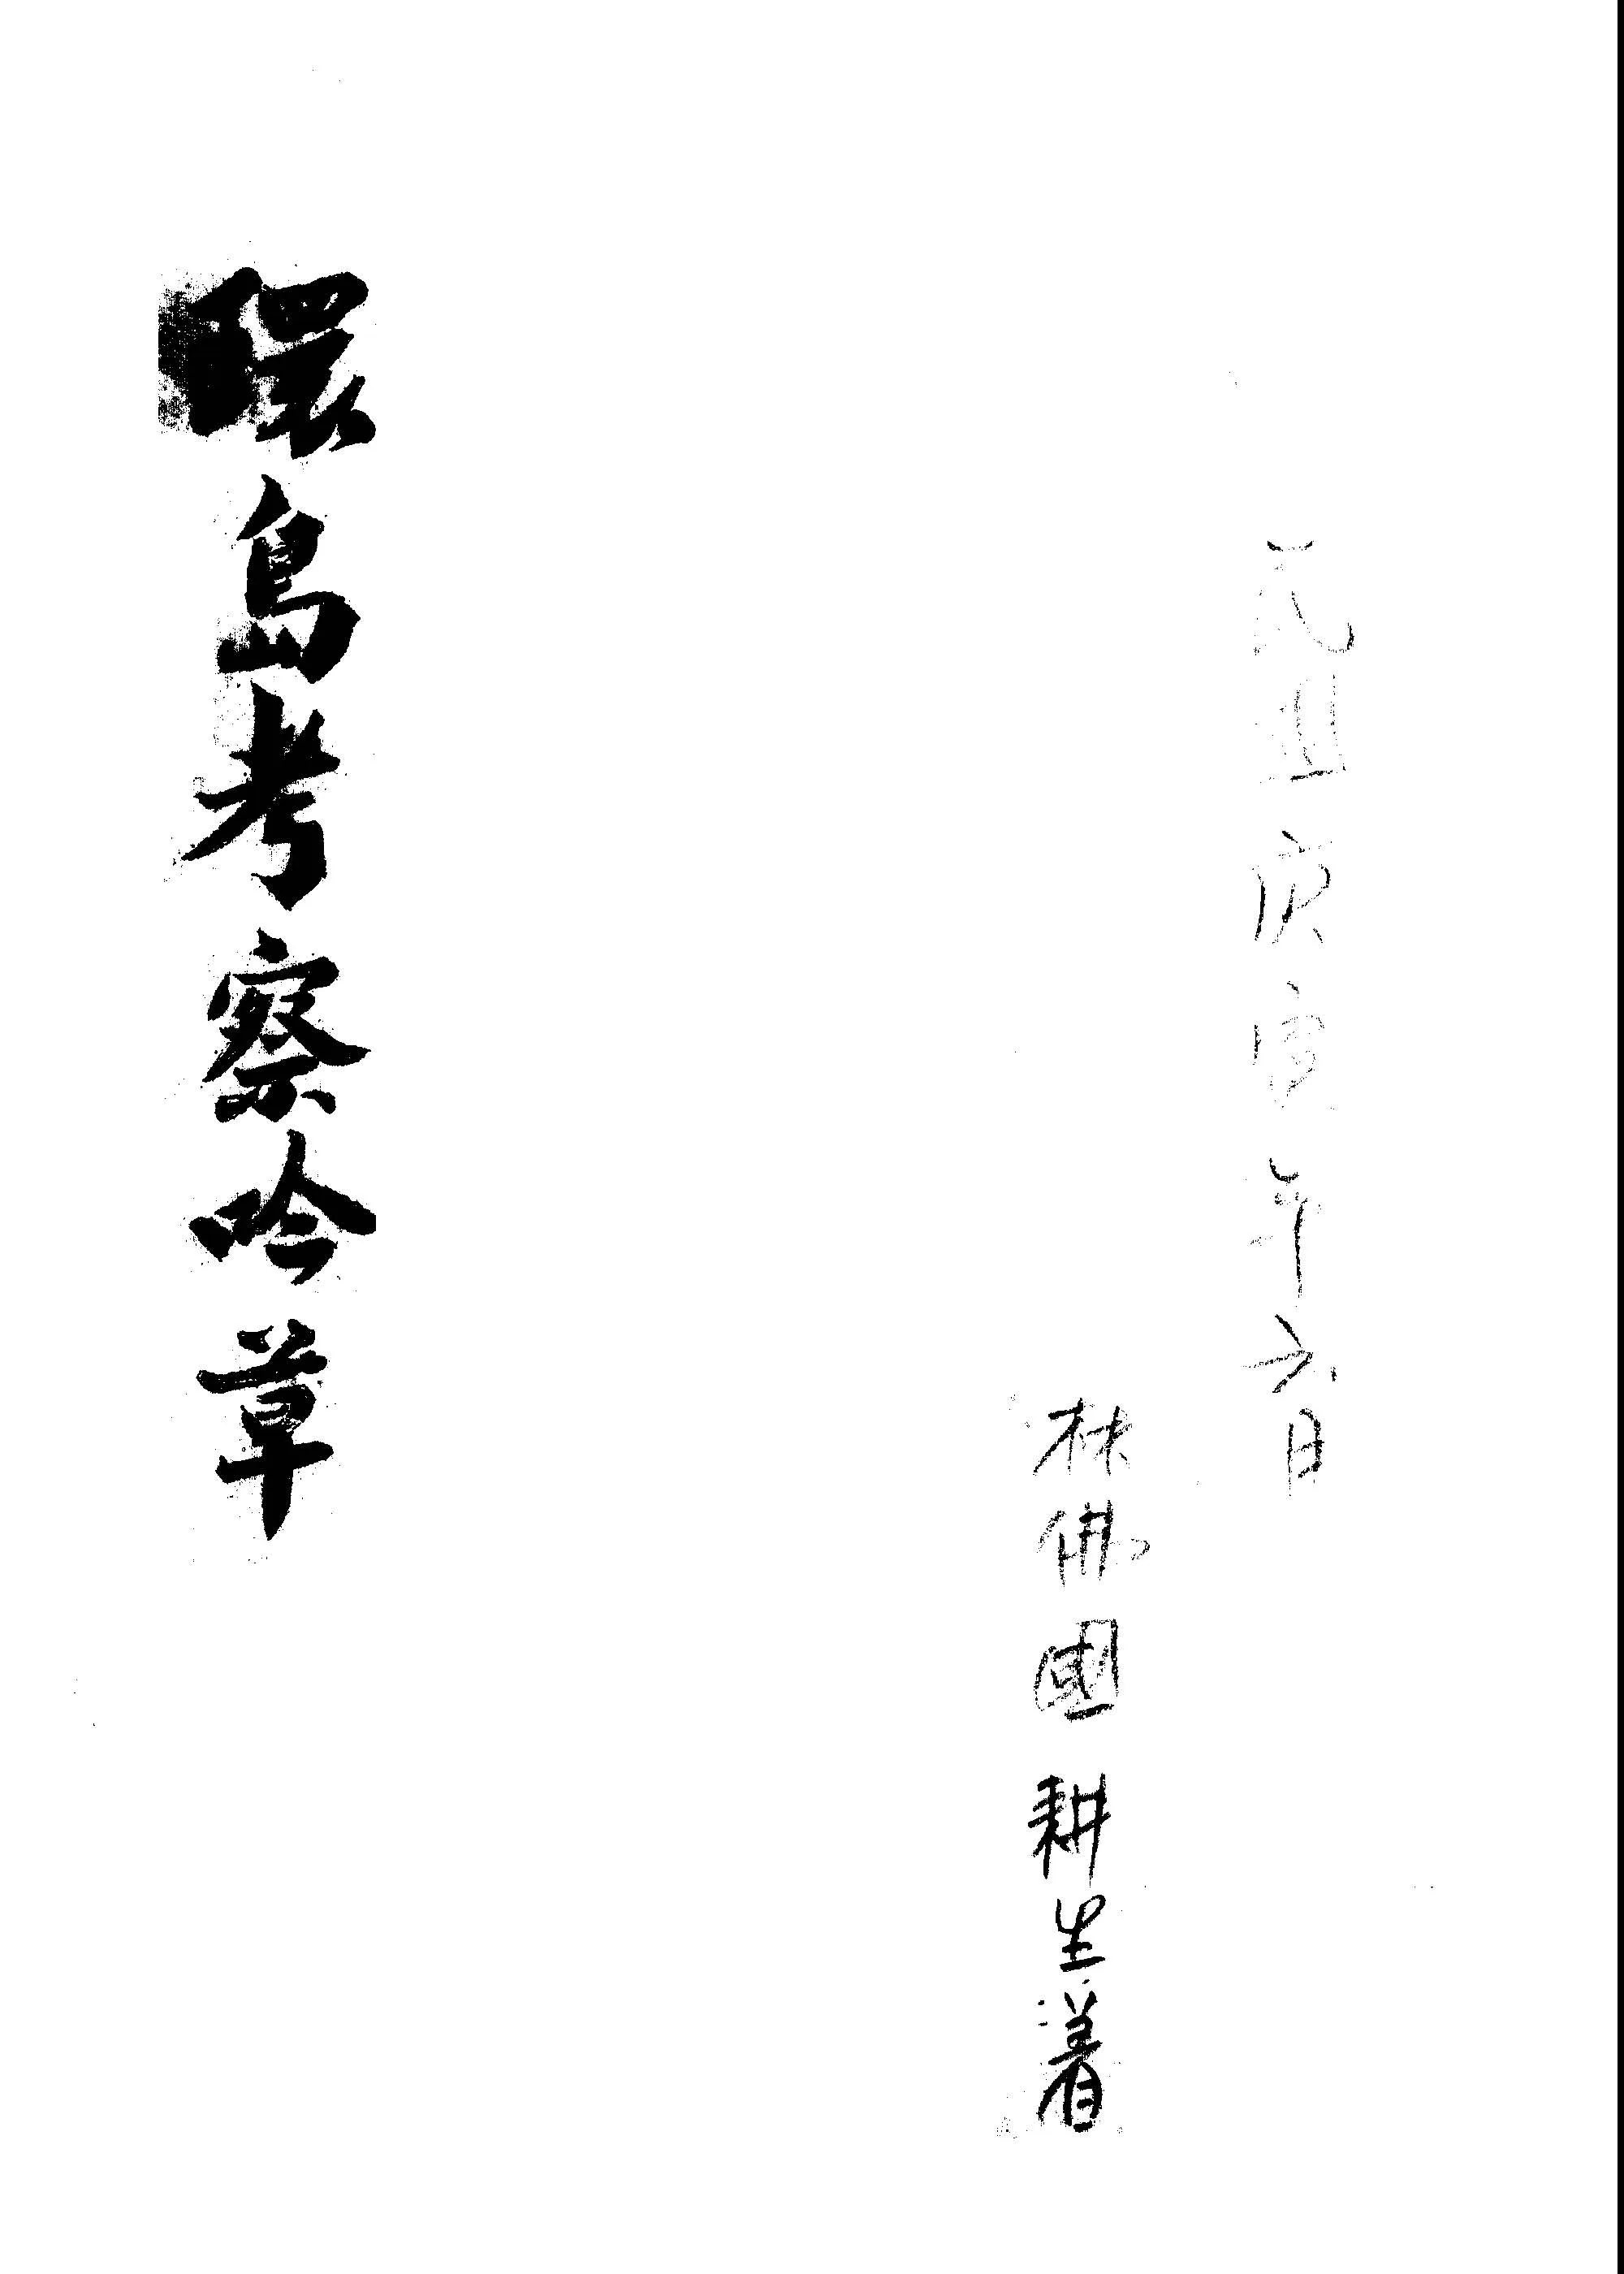 民國庚寅年六月
林佛國耕生著
環島考察吟草